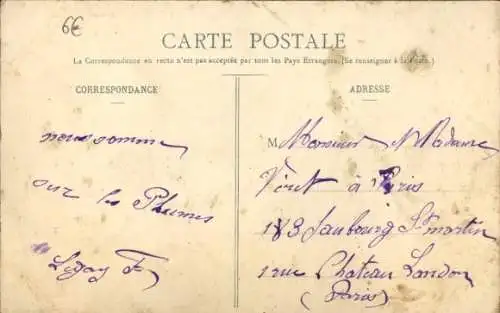 6€
CARTE POSTALE
La Correspondance au recto n'est pas acceptée par tous les Pays Etrangers. (Se renseigner à la Poste.)
CORRESPONDANCE
ADRESSE
nous somme
sur les Plumes
Legay F
M Monsieur Madame
à Paris
183 faubourg St martin
1 rue Chateau Landon
(Paris)